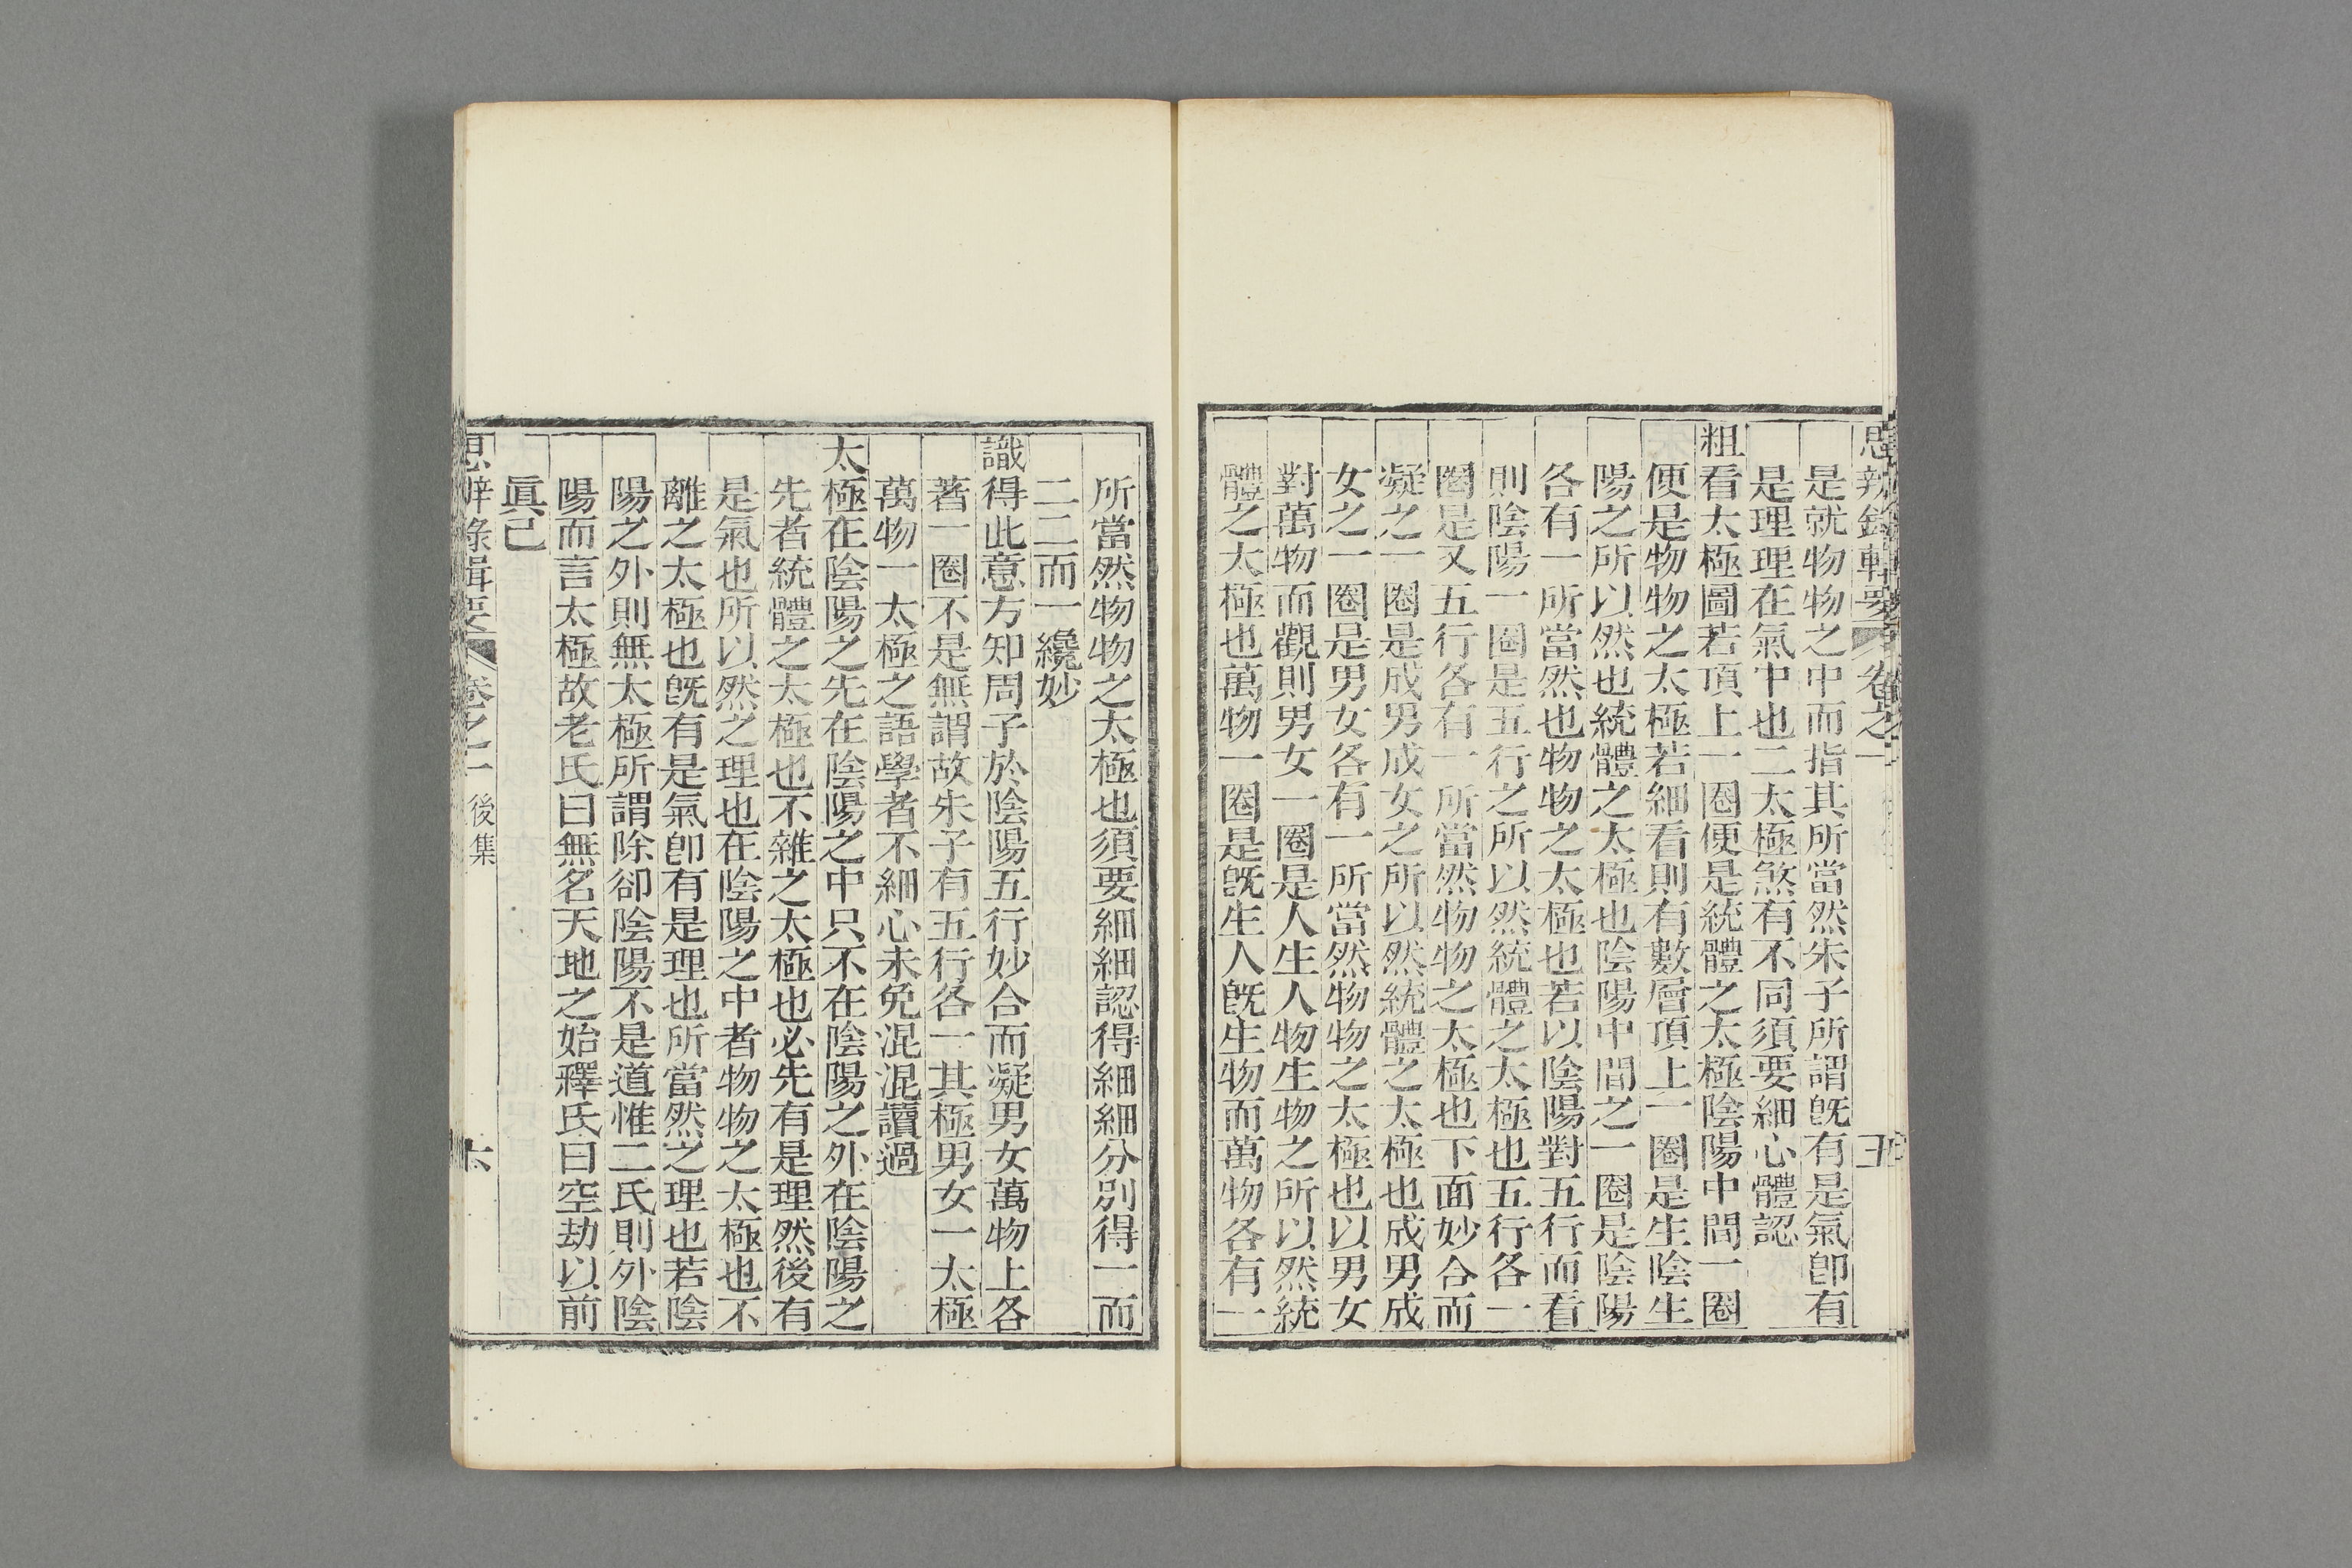 思辨錄輯要 卷之一 五
是就物物之中而指其所當然朱子所謂旣有是氣卽有
是理理在氣中也二太極煞有不同須要細心體認
粗看太極圖若頂上一圈便是統體之太極陰陽中間一圈
便是物物之太極若細看則有數層頂上一圈是生陰生
陽之所以然也統體之太極也陰陽中間之一圈是陰陽
各有一所當然也物物之太極也若以陰陽對五行而看
則陰陽一圈是五行之所以然統體之太極也五行各一
圈是又五行各有一所當然物物之太極也下面妙合而
凝之一圈是成男成女之所以然統體之太極也成男成
女之一圈是男女各有一所當然物物之太極也以男女
對萬物而觀則男女一圈是人生人物生物之所以然統
體之太極也萬物一圈是旣生人旣生物而萬物各有一
所當然物物之太極也須要細細認得細細分別得一而
二二而一纔妙
識得此意方知周子於陰陽五行妙合而凝男女萬物上各
著一圈不是無謂故朱子有五行各一其極男女一太極
萬物一太極之語學者不細心未免混混讀過
太極在陰陽之先在陰陽之中只不在陰陽之外在陰陽之
先者統體之太極也不雜之太極也必先有是理然後有
是氣也所以然之理也在陰陽之中者物物之太極也不
離之太極也旣有是氣卽有是理也所當然之理也若陰
陽之外則無太極所謂除卻陰陽不是道惟二氏則外陰
陽而言太極故老氏曰無名天地之始釋氏曰空劫以前
眞己
思辨錄輯要 卷之一 後集 六